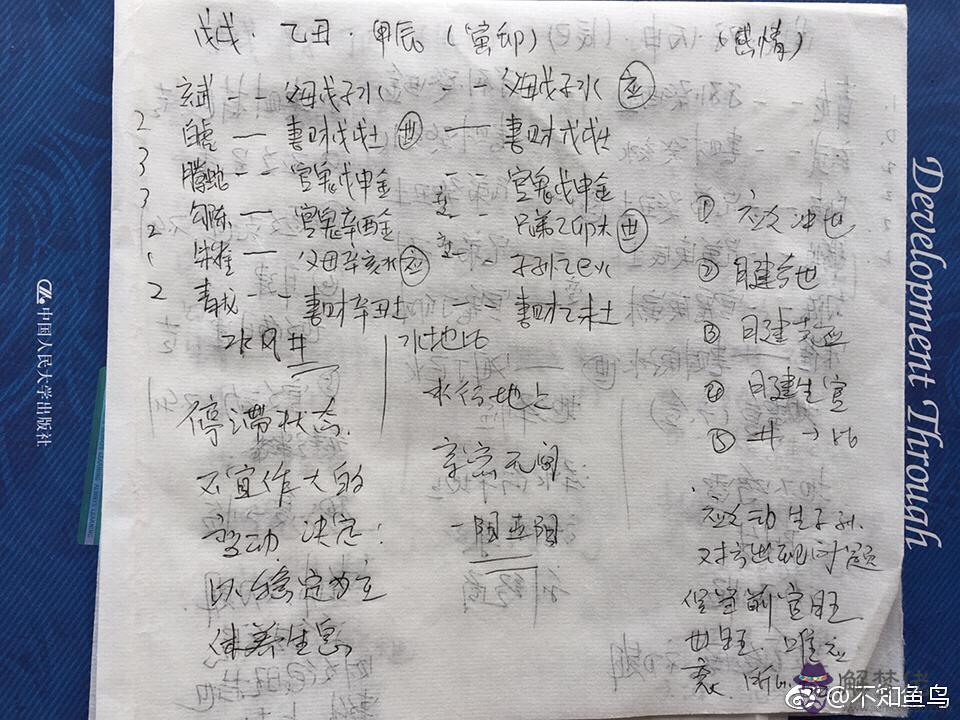 戊戌·乙丑·甲辰(寅卯) (感情)
玄武 -- 父母戊子水 -- 父母戊子水 应
2 白虎 — 妻财戊戌土 世 — 妻财戊戌土
3 腾蛇 -- 官鬼戊申金 -- 官鬼戊申金
3 勾陈 — 官鬼辛酉金 -- 兄弟乙卯木 世
2 朱雀 — 父母辛亥水 应 -- 子孙乙巳火
1
2 青龙 -- 妻财辛丑土 -- 妻财乙未土
水风井 水地比
停滞状态.
不宜作大的
变动 决定;
以稳定为主
休养生息
水行地上
亲密无间
一阳五阴
① 应爻冲世
② 日建合世
③ 日建克应
④ 日建生官
⑤ 井→比
应爻动生子孙.
对方出现问题
但当前官旺
世旺. 唯应
衰.
中国人民大学出版社
Development Through
解梦佬
@不知鱼鸟